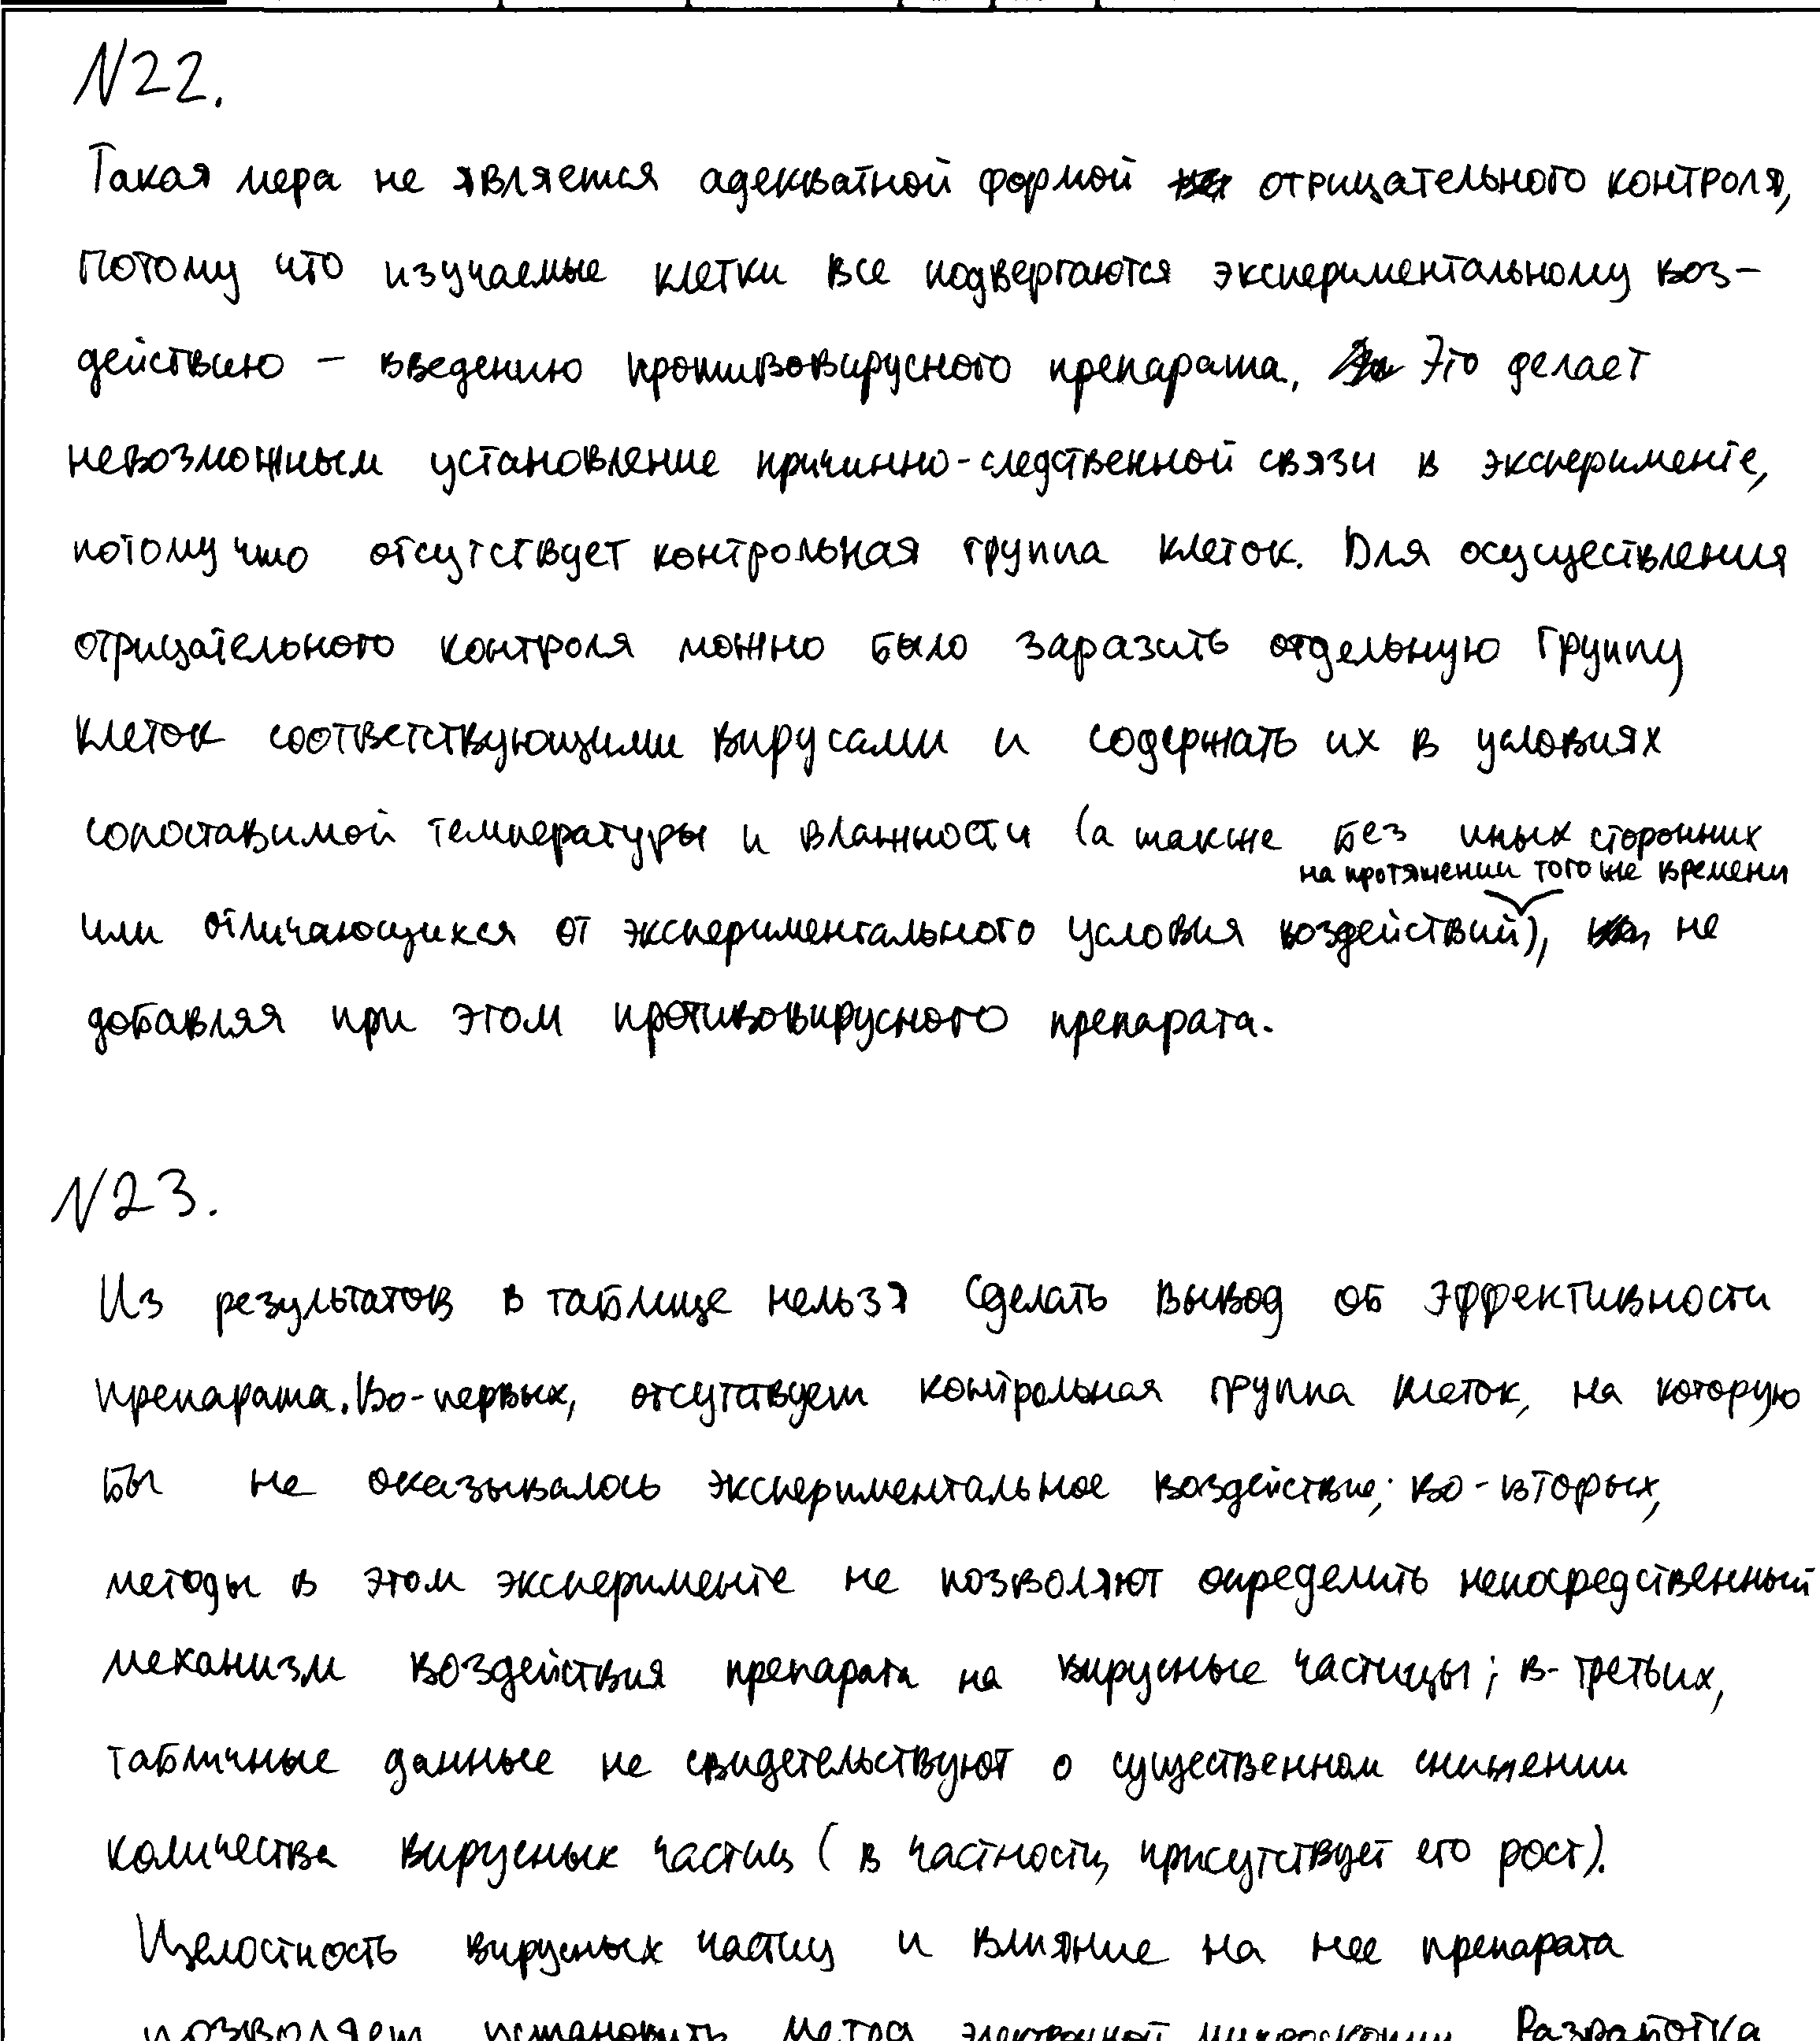 N22.
Такая мера не является адекватной формой отрицательного контроля,
потому что изучаемые клетки все подвергаются экспериментальному воз-
действию – введению противовирусного препарата. Это делает
невозможным установление причинно-следственной связи в эксперименте,
потому что отсутствует контрольная группа клеток. Для осуществления
отрицательного контроля можно было заразить отдельную группу
клеток соответствующими вирусами и содержать их в условиях
сопоставимой температуры и влажности (а также без иных сторонних
на протяжении того же времени
или отличающихся от экспериментального условия воздействий), не
добавляя при этом противовирусного препарата.
N23.
Из результатов в таблице нельзя сделать вывод об эффективности
препарата. Во-первых, отсутствует контрольная группа клеток, на которую
бы не оказывалось экспериментальное воздействие; во-вторых,
методы в этом эксперименте не позволяют определить непосредственный
механизм воздействия препарата на вирусные частицы; в-третьих,
табличные данные не свидетельствуют о существенном снижении
количества вирусных частиц (в частности, присутствует его рост).
Целостность вирусных частиц и влияние на нее препарата
позволяет установить метод электронной микроскопии. Разработка